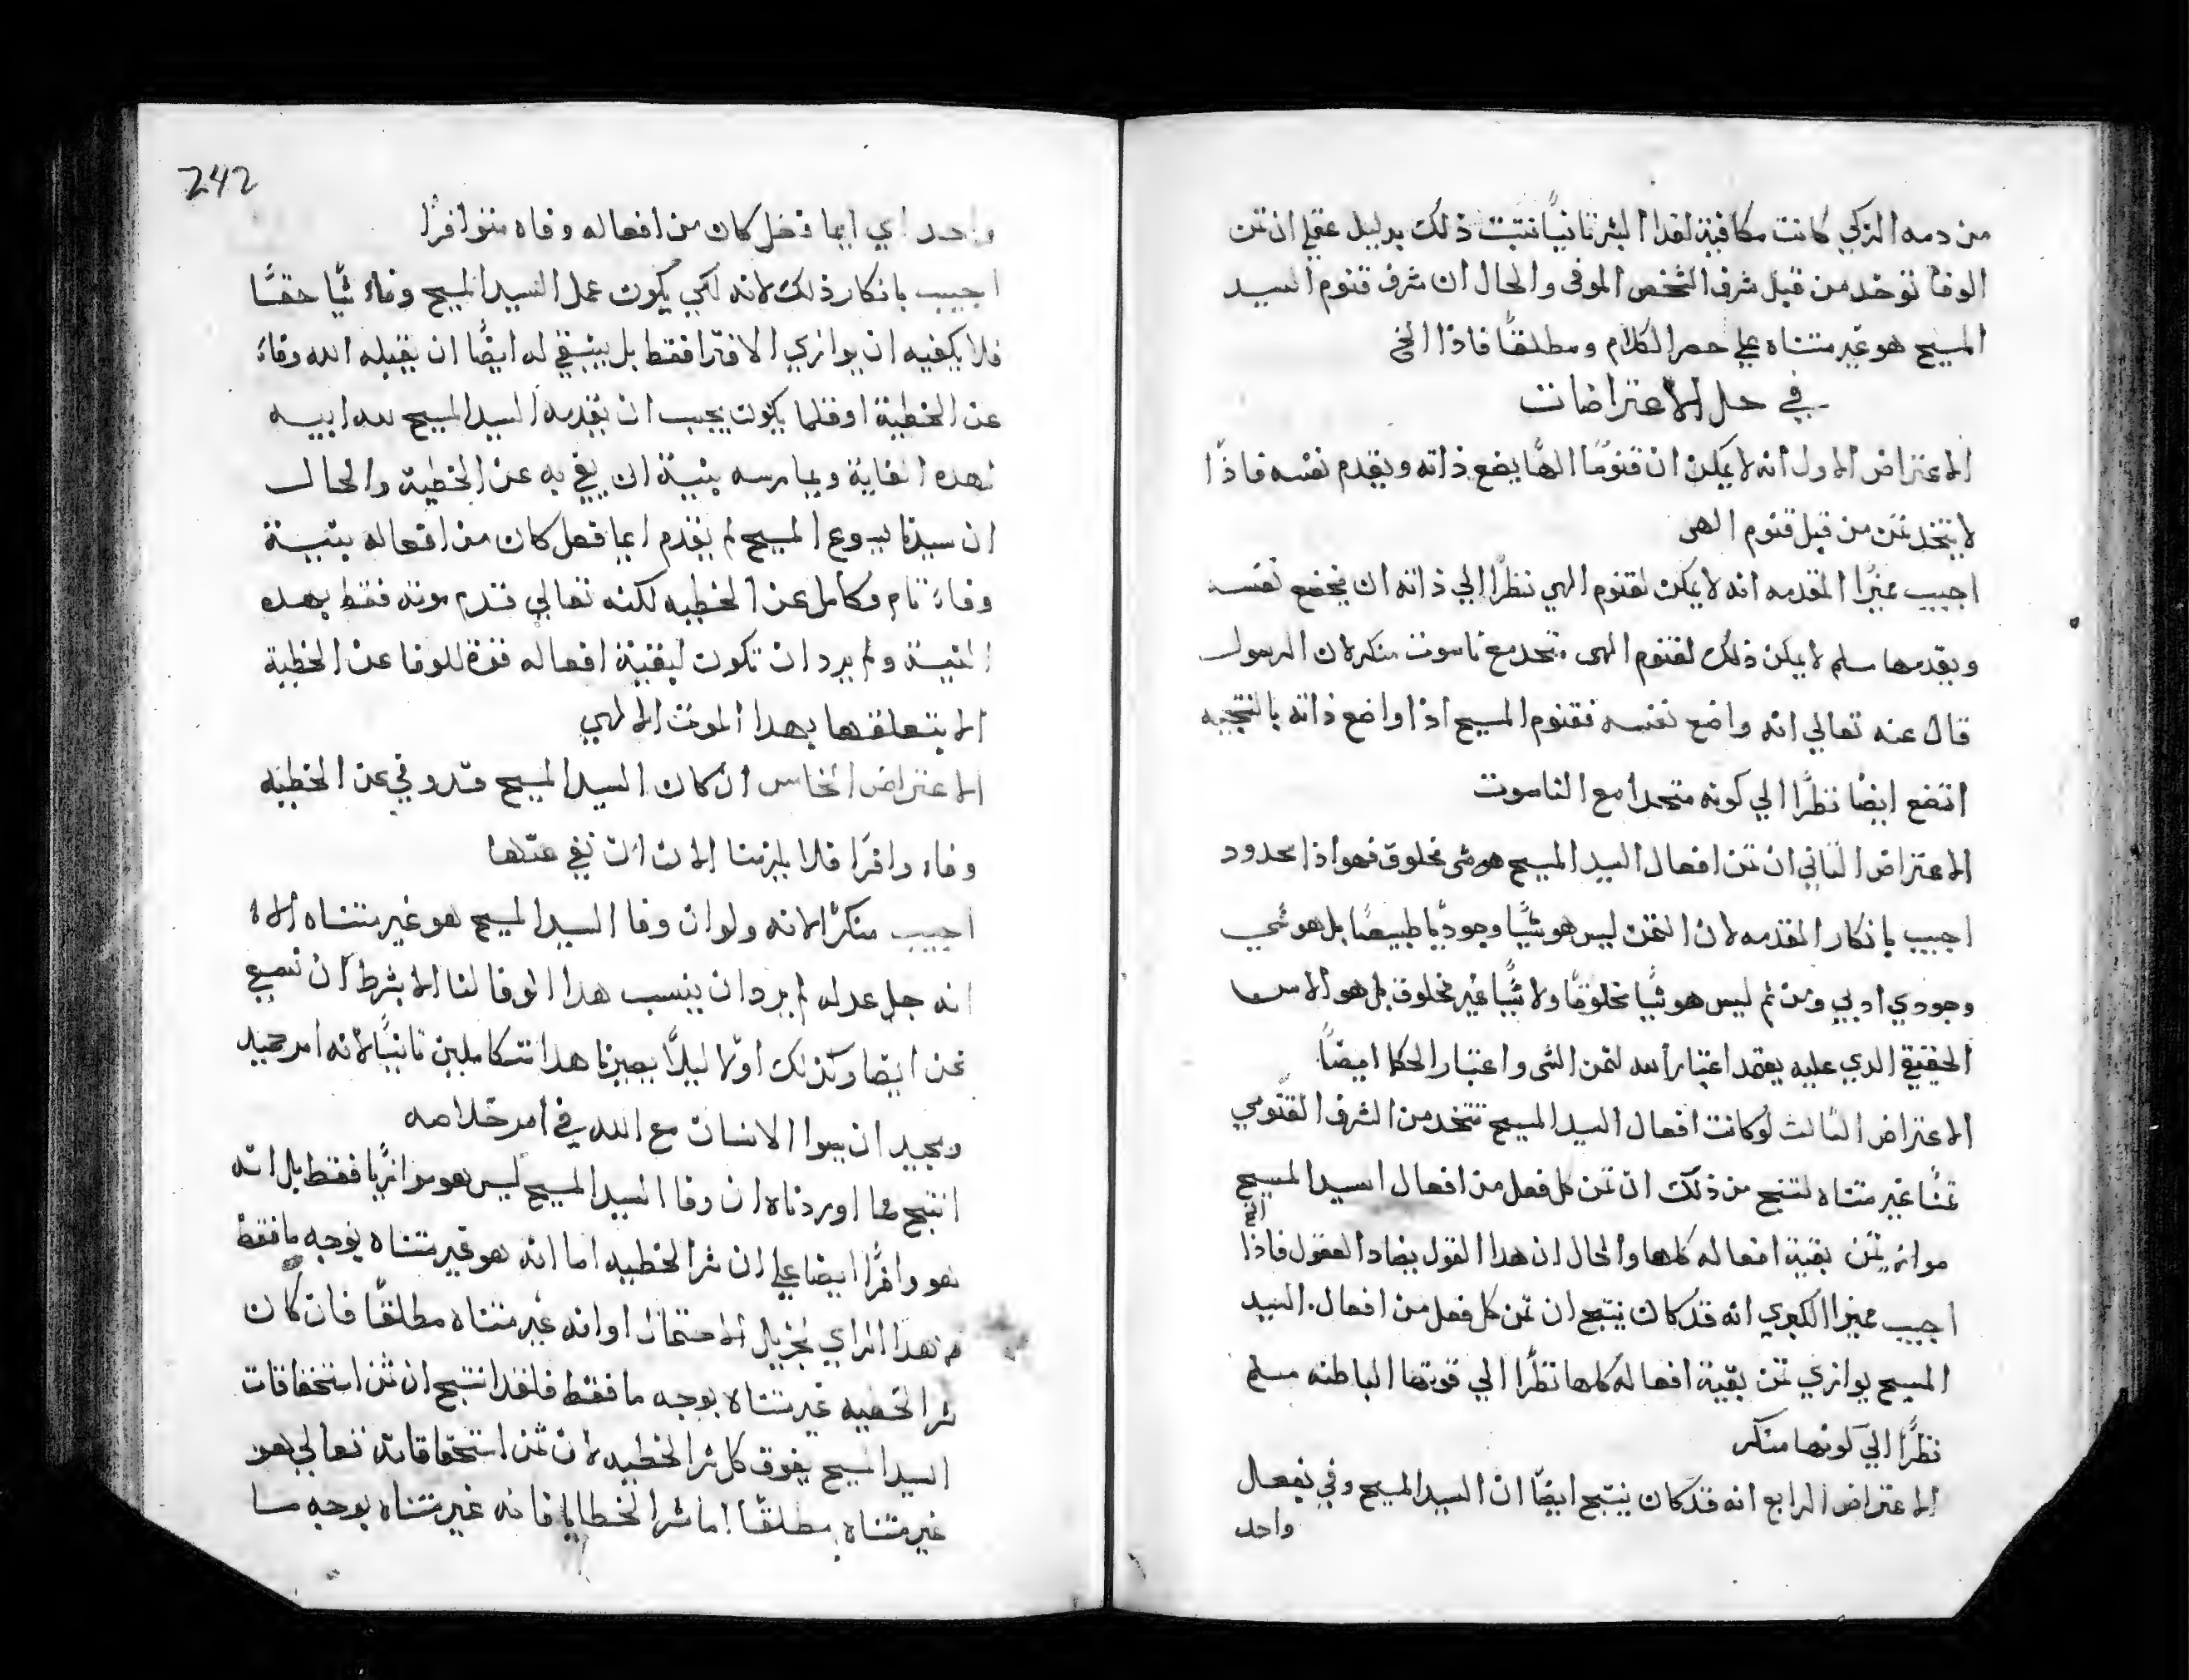 من دمه الزكي كانت مكافية لفدا البشر ثانيًا نثبت ذلك بدليل عقلي ان ثمن
الوفا توخد من قبل شرف الشخص الموفى والحال ان شرف قنوم السيد
المسيح هو غير متناه علي حصر الكلام ومطلقًا فاذا الخ
في حل الاعتراضات
الاعتراض الاول انه لا يمكن ان قنومًا الهًا يضع ذاته ويقدم نفسه فاذًا
لا يتخد ثمن من قبل قنوم الهى
اجيب مميزًا المقدمه انه لا يمكن لقنوم الهي نظرًا الي ذاته ان يخضع نفسه
ويقدمها سلم لا يمكن ذلك لقنوم الهى متحد مع ناسوت منكر لان الرسول
قال عنه تعالي انه واضع نفسه فقنوم المسيح اذا واضع ذاته بالنتيجه
اتضع ايضًا نظرًا الي كونه متحدا مع الناسوت
الاعتراض الثاني ان ثمن افعال السيد المسيح هو شى مخلوق فهو اذا محدود
اجيب بانكار المقدمه لان الثمن ليس هو شيًا وجوديًا طبيعيًا بل هو شي
وجودي ادبي ومن ثم ليس هو شيًا مخلوقًا ولا شيًا غير مخلوق بل هو الاساس
الحقيقي الدي عليه يعتمد اعتبار الله لثمن الشى واعتبار الحكا ايضًا
الاعتراض الثالث لو كانت افعال السيد المسيح تتخد من الشرف القنومي
ثمنًا غير متناه لنتج من ذلك ان ثمن كل فعل من افعال السيد المسيح
موازٍ ثمن بقية افعاله كلها والحال ان هدا القول يضاد العقول فاذًا الخ
اجيب مميزا الكبري انه قد كان ينتج ان ثمن كل فعل من افعال السيد
المسيح يوازي ثمن بقية افعاله كلها نظرًا الي قوتها الباطنه مسلم
نظرًا الي كونها منكر
الاعتراض الرابع انه قد كان ينتج ايضًا ان السيد المسيح وفي بفعال
واحد
242
واحد اي ايما فعل كان من افعاله وفاه متوافرًا
اجيب بانكار ذلك لانه لكي يكون عمل السيد المسيح وفاء شيا حقًا
فلا يكفيه ان يوازي الافترا فقط بل ينبغي له ايضًا ان يقبله الله وفاء
عن الخطية او قلما يكون يجب ان يقدمه السيد المسيح لله ابيه
لهده الغاية ويمارسه بنية ان يفي به عن الخطية والحال
ان سيدنا يسوع المسيح لم يقدم ايما فعل كان من افعاله بنية
وفاء تام وكامل عن الخطيه لكنه تعالي قدم موته فقط بهده
النية ولم يرد ان تكون لبقية افعاله قوة للوفا عن الخطية
الا بتعلقها بهدا الموت الالهي
الاعتراض الخامس ان كان السيد المسيح قد وفي عن الخطيه
وفاء وافرًا فلا يلزمنا الان ان نفي عنها
اجيب منكرًا لانه ولو ان وفا السيد المسيح هو غير متناه الا
انه جل عدله لم يرد ان ينسب هدا الوفا لنا الا بشرط ان نسعي
نحن ايضا وكذلك اولا ليلًا يصيرنا هدا متكاسلين ثانيًا لانه امر حميد
ومجيد ان يسوا الانسان مع الله في امر خلاصه
انتج مما اوردناه ان وفا السيد المسيح ليس هو موازيًا فقط بل انه
هو وافرًا ايضا علي ان شر الخطيه اما انه هو غير متناه بوجه ما فقط
وهدا الراي لجزيل الاحتمال او انه غير متناه مطلقًا فان كان
شر الخطيه غير متناه بوجه ما فقط فلقد انتج ان ثمن استحقاقات
السيد المسيح يفوق كل شر الخطيه لان ثمن استحقاقاته تعالي هو
غير متناه مطلقًا اما شر الخطايا فانه غير متناه بوجه ما